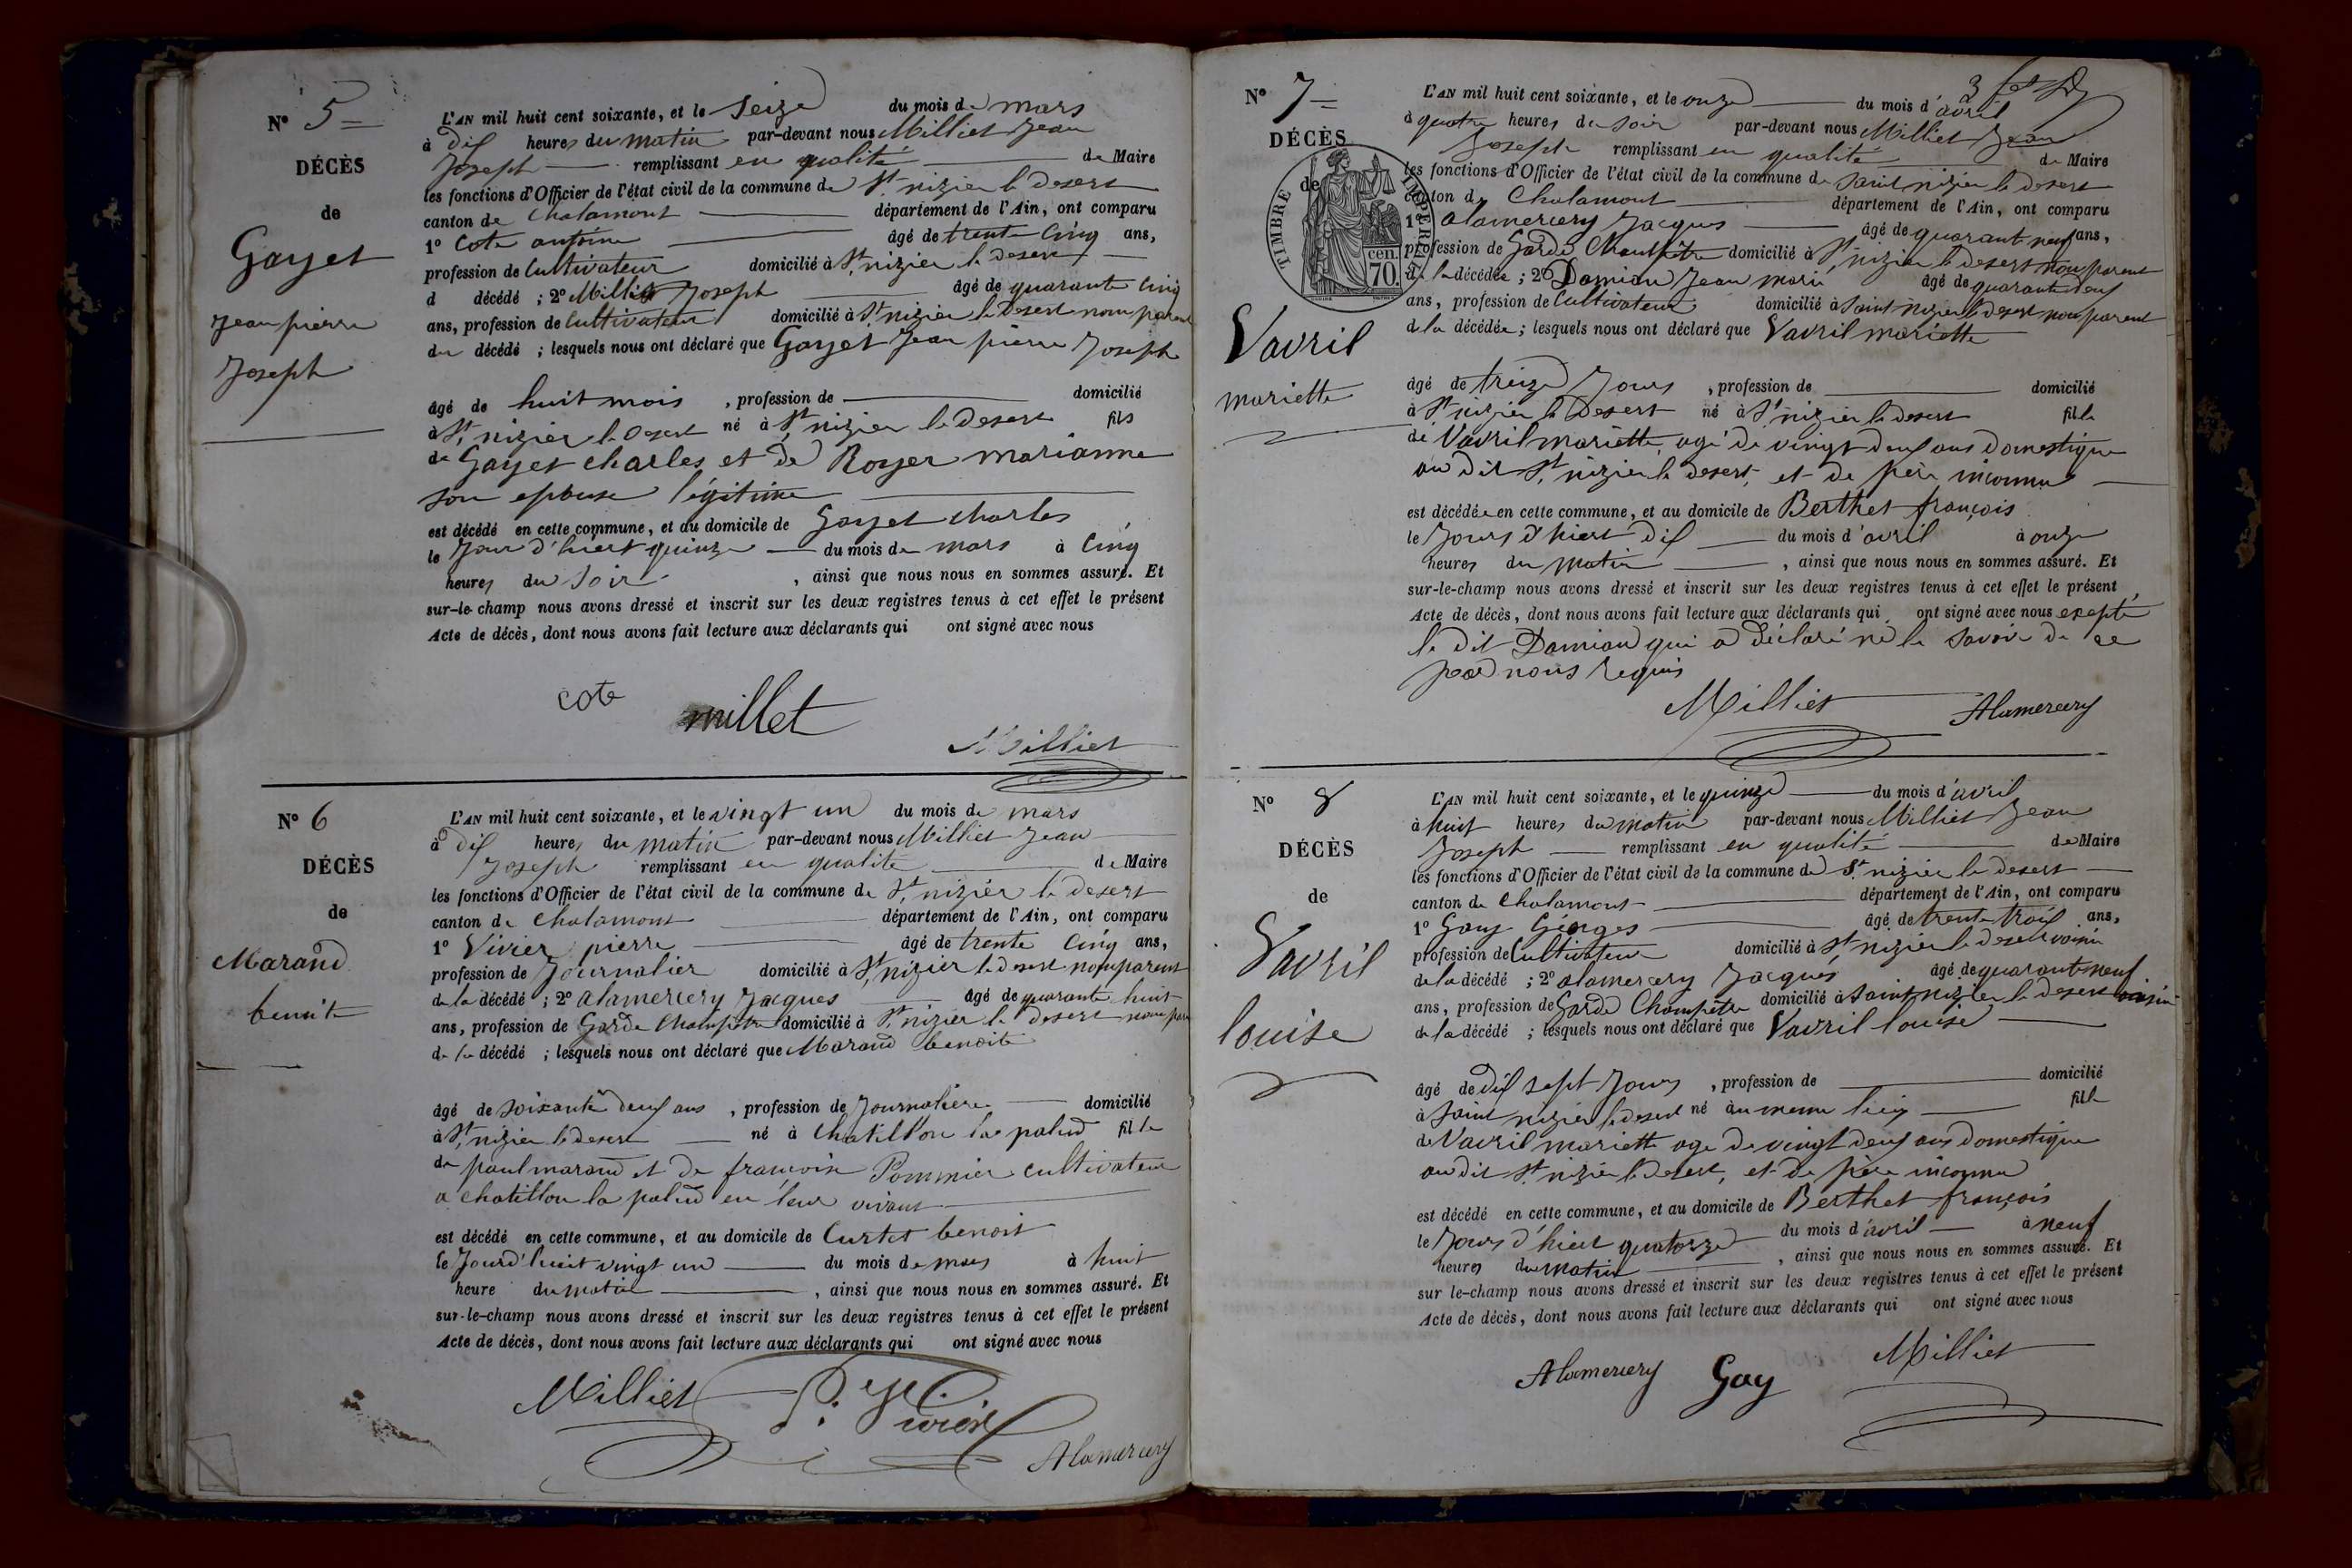 N° 5
DÉCÈS
de
Gayet
Jean pierre
Joseph
L'AN mil huit cent soixante, et le Seize du mois de mars
à dix heures du matin par-devant nous Milliet Jean
Joseph remplissant en qualité de Maire
les fonctions d'Officier de l'état civil de la commune de St nizier le Desert
canton de Chalamont département de l'Ain, ont comparu
1° Cote antoine âgé de trente Cinq ans,
profession de Cultivateur domicilié à St nizier le desert
d décédé ; 2° Millet Joseph âgé de quarante Cinq
ans, profession de Cultivateur domicilié à St nizier le Desert non parent
du décédé ; lesquels nous ont déclaré que Gayet Jean pierre Joseph
âgé de huit mois , profession de domicilié
à St nizier le Desert né à St nizier le desert fils
de Gayet Charles et de Royer marianne
son epouse légitime
est décédé en cette commune, et au domicile de Gayet Charles
le Jour d'hiert quinze du mois de mars à Cinq
heures du Soir , ainsi que nous nous en sommes assuré. Et
sur-le-champ nous avons dressé et inscrit sur les deux registres tenus à cet effet le présent
Acte de décès, dont nous avons fait lecture aux déclarants qui ont signé avec nous
cote
millet
Milliet
N° 6
DÉCÈS
de
Marand
benoite
L'AN mil huit cent soixante, et le vingt un du mois de mars
à dix heures du matin par-devant nous Milliet Jean
Joseph remplissant en qualité de Maire
les fonctions d'Officier de l'état civil de la commune de St nizier le desert
canton de Chalamont département de l'Ain, ont comparu
1° Vivier pierre âgé de trente Cinq ans,
profession de Journalier domicilié à St nizier le desert non parent
de la décédé ; 2° alamercery Jacques âgé de quarante huit
ans, profession de Garde Champetre domicilié à St nizier le desert non par
de la décédé ; lesquels nous ont déclaré que Marand benoite
âgé de soixante deux ans , profession de Journaliere domicilié
à St nizier le desert né à Chatillon la palud fille
de paul marand et de francoise Pommier cultivateur
a chatillon la palud en leur vivant
est décédé en cette commune, et au domicile de Curtet benoit
le Jourd'huit vingt un du mois de mars à huit
heure du matin , ainsi que nous nous en sommes assuré. Et
sur-le-champ nous avons dressé et inscrit sur les deux registres tenus à cet effet le présent
Acte de décès, dont nous avons fait lecture aux déclarants qui ont signé avec nous
Milliet
P. Vivier
Alamercery
N° 7
DÉCÈS
de
TIMBRE IMPERIAL
70 cen.
Vavril
mariette
L'AN mil huit cent soixante, et le onze du mois d'avril
à quatre heures du soir par-devant nous Milliet Jean
Joseph remplissant en qualité de Maire
les fonctions d'Officier de l'état civil de la commune de Saint nizier le desert
canton de Chalamont département de l'Ain, ont comparu
1° alamercery Jacques âgé de quarant neuf ans,
profession de Garde Champêtre domicilié à St nizier le desert non parent
de la décédée ; 2° Damian Jean marie âgé de quarante deux
ans, profession de Cultivateur domicilié à Saint nizier le desert non parent
de la décédée ; lesquels nous ont déclaré que Vavril mariette
âgé de treize Jours , profession de domicilié
à St nizier le Desert né à St nizier le desert fille
de Vavril mariette agé de vingt deux ans domestique
au dit St nizier le desert, et de père inconnu
est décédée en cette commune, et au domicile de Berthet françois
le Jours d'hiert dix du mois d'avril à onze
heures du matin , ainsi que nous nous en sommes assuré. Et
sur-le-champ nous avons dressé et inscrit sur les deux registres tenus à cet effet le présent
Acte de décès, dont nous avons fait lecture aux déclarants qui ont signé avec nous exepté
le dit Damian qui a déclaré ne le savoir de ce
par nous requis
Milliet
Alamercery
N° 8
DÉCÈS
de
Vavril
louise
L'AN mil huit cent soixante, et le quinze du mois d'avril
à huit heures du matin par-devant nous Milliet Jean
Joseph remplissant en qualité de Maire
les fonctions d'Officier de l'état civil de la commune de St nizier le desert
canton de Chalamont département de l'Ain, ont comparu
1° Gay Géorges âgé de trente trois ans,
profession de Cultivateur domicilié à St nizier le desert voisin
de la décédé ; 2° alamercery Jacques âgé de quarant neuf
ans, profession de Garde Champetre domicilié à Saint nizier le desert voisin
de la décédé ; lesquels nous ont déclaré que Vavril louise
âgé de dix sept Jours , profession de domicilié
à Saint nizier le desert né au meme lieu fille
de Vavril mariette age de vingt deux ans domestique
au dit St nizier le desert, et de père inconnu
est décédé en cette commune, et au domicile de Berthet françois
le Jours d'hiert quatorze du mois d'avril à neuf
heures du matin , ainsi que nous nous en sommes assuré. Et
sur le-champ nous avons dressé et inscrit sur les deux registres tenus à cet effet le présent
Acte de décès, dont nous avons fait lecture aux déclarants qui ont signé avec nous
Alamercery
Gay
Milliet